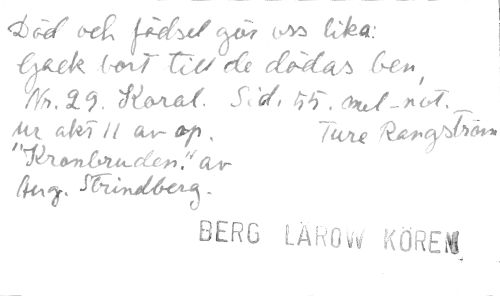 Död och födsel gör oss lika:
Gack bort till de dödas ben,
Nr. 29. Koral. Sid. 55. mel-not.
ur akt II av op. Ture Rangström
"Kronbruden." av
Aug. Strindberg.
BERG LAROW KÖREN